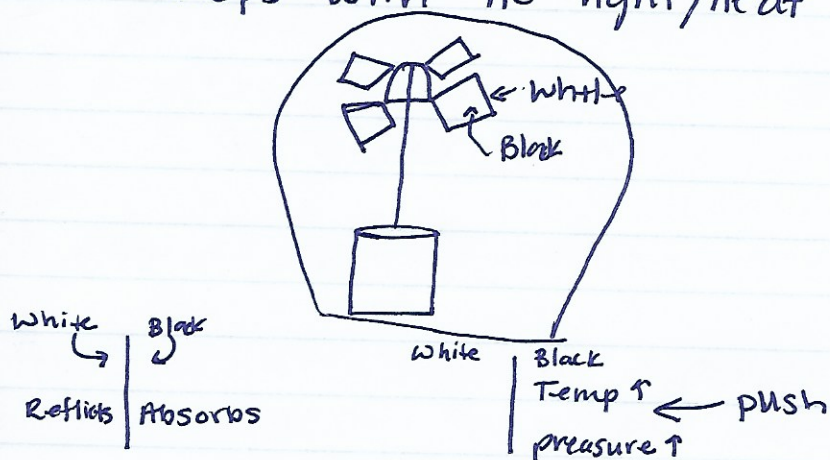 no light/heat
← White
Black
White
Black
Reflicts
Absorbs
White
Black
Temp ↑
← push
preasure ↑